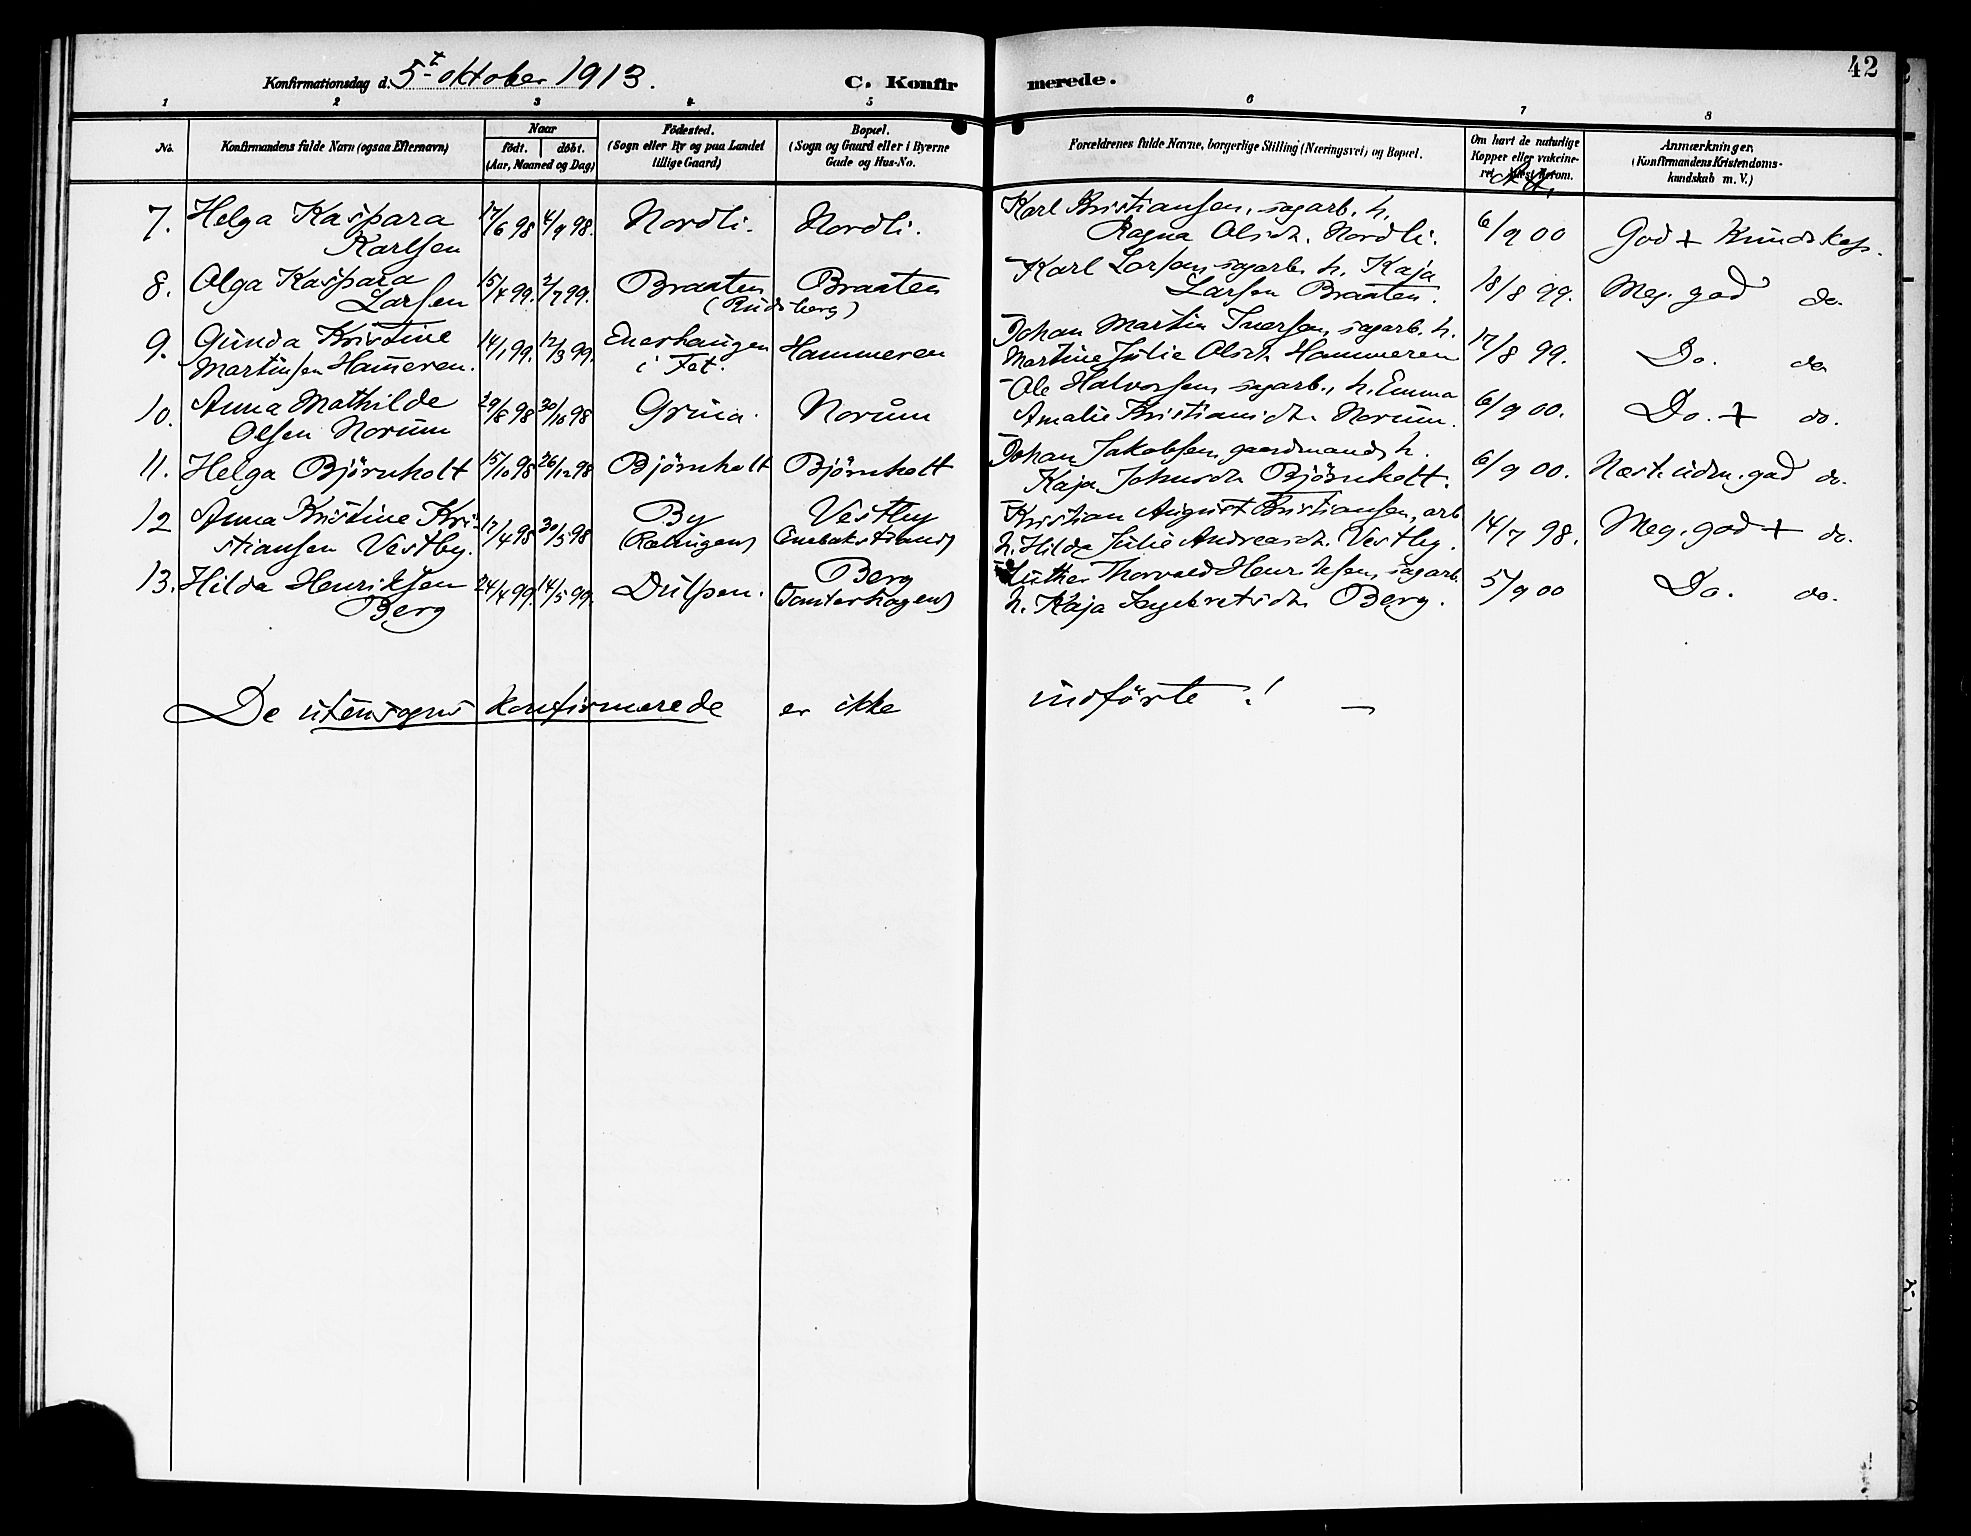 42
Konfirmationsdag d. 5t oktober 1913. C. Konfirmerede.
1 2 3 4 5 6 7 8
No.
Konfirmandens fulde Navn (ogsaa Efternavn)
Naar
født. døbt.
(Aar, Maaned og Dag)
Födested.
(Sogn eller By og paa Landet
tillige Gaard)
Bopæl.
(Sogn og Gaard eller i Byerne
Gade og Hus-No.
Forældrenes fulde Navne, borgerlige Stilling (Næringsvei) og Bopæl.
Om havt de naturlige
Kopper eller vakcine-
ret
Anmærkninger.
(Konfirmandens Kristendoms-
kundskab m. V.)
7. Helga Kaspara 17/6 98 4/9 98. Nordli. Nordli. Karl Kristiansen, sagarb. h. 6/9 00 God + Kundskap.
Karlsen Ragna Olsdt. Nordli.
8. Olga Kaspara 15/4 99. 2/7 99. Braaten Braaten Karl Larsen sagarb. h. Kaja 18/8 99. Meg. god do.
Larsen (Rudsberg) Larsen Braaten.
9. Gunda Kristine 14/1 99. 12/3 99. Enershaugen Hammeren Johan Martin Iversen, sagarb. h. 17/8 99. Do. do
Martinsen Hameren. i Fet. Martine Julie Olsdt. Hammeren
10. Anna Mathilde 29/8 98 30/10 98 Grina. Norum Ole Halvorsen, sagarb., h. Emma 6/9 00. Do. + do.
Olsen Norum Amalie Kristiansdt. Norum.
11. Helga Björnholt 15/10 98 26/12 98 Björnholt Björnholt Johan Jakobsen, gaardmand, h. 6/9 00. Næst. udm. god do.
Kaja Johnsdt. Björnholt.
12 Anna Kristine Kri- 17/4 98 30/5 98 By Vestby Kristian August Kristiansen, arb 14/7 98. Meg. god + do.
stiansen Vestby. (Rælingen) h. Hilda Julie Andreasdt. Vestby.
13. Hilda Henriksen 24/4 99. 14/5 99. Dulpen. Berg Thorvald Henriksen, sagarb. 5/9 00 Do. do.
Berg h. Kaja Ingebretsdt. Berg.
De utensogns konfirmerede er ikke indförte! —